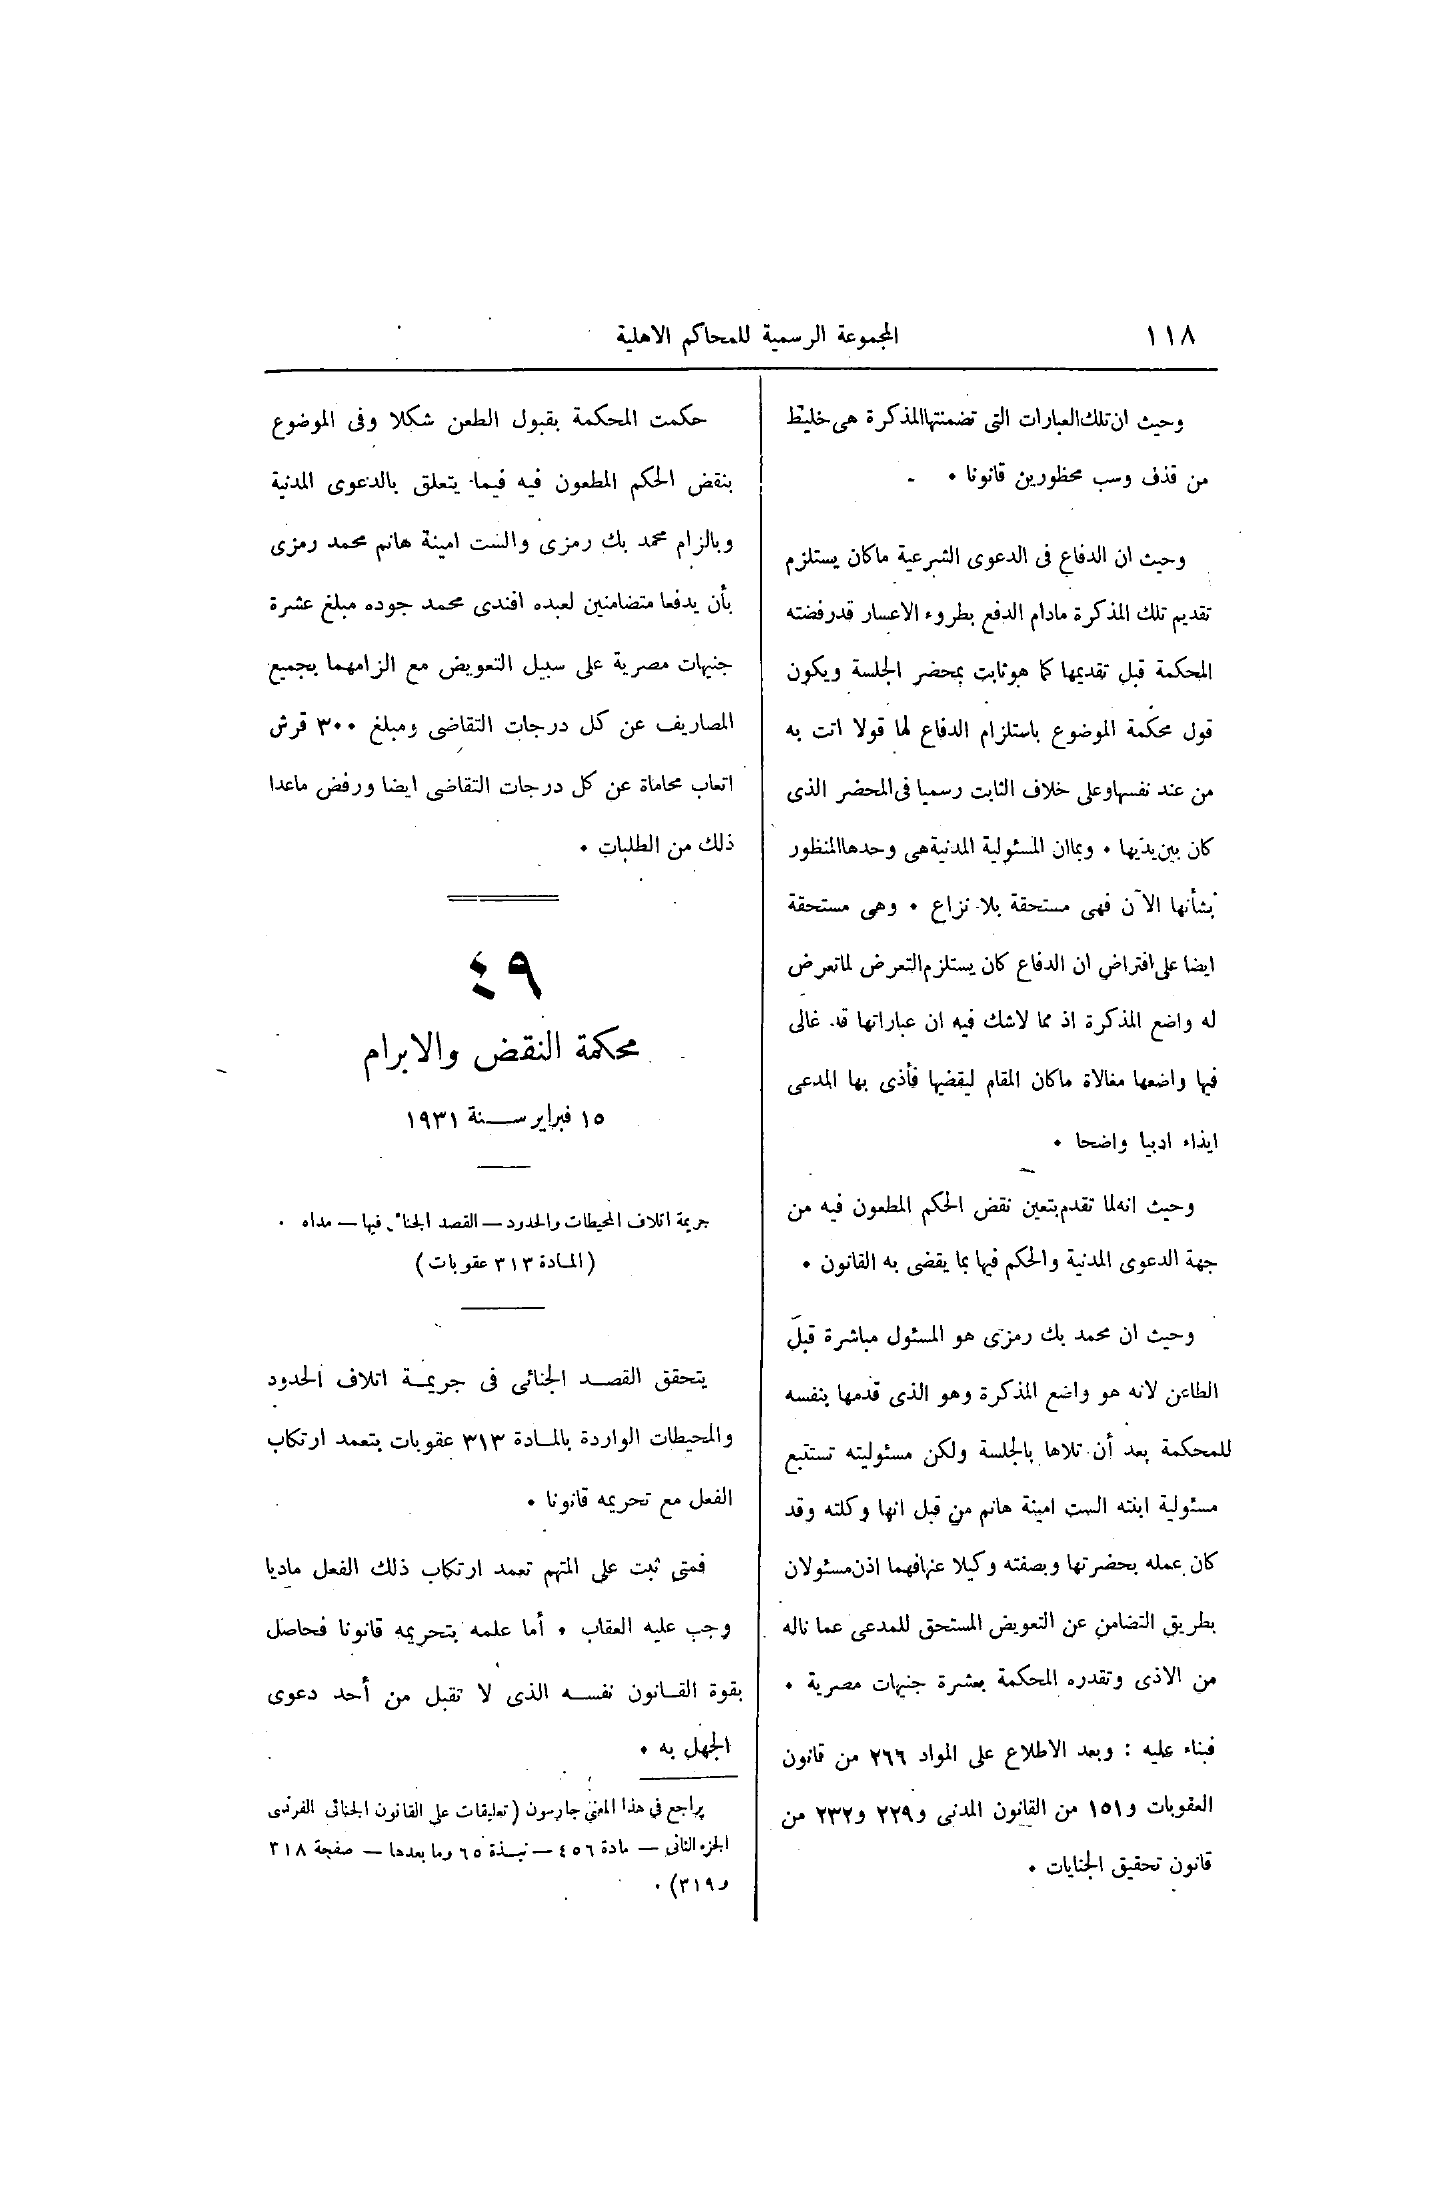 ١١٨
المجموعة الرسمية للمحاكم الاهلية
وحيث ان تلك العبارات التى تضمنتها المذكرة هى خليط
من قذف وسب محظورين قانونا ٠
وحيث ان الدفاع فى الدعوى الشرعية ماكان يستلزم
تقديم تلك المذكرة مادام الدفع بطروء الاعسار قد رفضته
المحكمة قبل تقديمها كما هو ثابت بمحضر الجلسة ويكون
قول محكمة الموضوع باستلزام الدفاع لها قولا اتت به
من عند نفسها وعلى خلاف الثابت رسميا فى المحضر الذى
كان بين يديها ٠ وبما ان المسئولية المدنية هى وحدها المنظور
بشأنها الآن فهى مستحقة بلا نزاع ٠ وهى مستحقة
ايضا على افتراض ان الدفاع كان يستلزم التعرض لما تعرض
له واضع المذكرة اذ مما لاشك فيه ان عباراتها قد غالى
فيها واضعها مغالاة ماكان المقام ليقضيها فأذى بها المدعى
ايذاء ادبيا واضحا ٠
وحيث انه لما تقدم يتعين نقض الحكم المطعون فيه من
جهة الدعوى المدنية والحكم فيها بما يقضى به القانون ٠
وحيث ان محمد بك رمزى هو المسئول مباشرة قبل
الطاعن لانه هو واضع المذكرة وهو الذى قدمها بنفسه
للمحكمة بعد أن تلاها بالجلسة ولكن مسئوليته تستتبع
مسئولية ابنته الست امينة هانم من قبل انها وكلته وقد
كان عمله بحضرتها وبصفته وكيلا عنها فهما اذن مسئولان
بطريق التضامن عن التعويض المستحق للمدعى عما ناله
من الاذى وتقدره المحكمة بعشرة جنيهات مصرية ٠
فبناء عليه : وبعد الاطلاع على المواد ٢٦٦ من قانون
العقوبات و١٥١ من القانون المدنى و٢٢٩ و٢٣٢ من
قانون تحقيق الجنايات ٠
حكمت المحكمة بقبول الطعن شكلا وفى الموضوع
بنقض الحكم المطعون فيه فيما يتعلق بالدعوى المدنية
وبالزام محمد بك رمزى والست امينة هانم محمد رمزى
بأن يدفعا متضامنين لعبده افندى محمد جوده مبلغ عشرة
جنيهات مصرية على سبيل التعويض مع الزامهما بجميع
المصاريف عن كل درجات التقاضى ومبلغ ٣٠٠ قرش
اتعاب محاماة عن كل درجات التقاضى ايضا ورفض ماعدا
ذلك من الطلبات ٠
٤٩
محكمة النقض والابرام
١٥ فبراير سنة ١٩٣١
جريمة اتلاف المحيطات والحدود — القصد الجنائى فيها — مداه ٠
(المادة ٣١٣ عقوبات)
يتحقق القصد الجنائى فى جريمة اتلاف الحدود
والمحيطات الواردة بالمادة ٣١٣ عقوبات بتعمد ارتكاب
الفعل مع تحريمه قانونا ٠
فمتى ثبت على المتهم تعمد ارتكاب ذلك الفعل ماديا
وجب عليه العقاب ٠ أما علمه بتحريمه قانونا فحاصل
بقوة القانون نفسه الذى لا تقبل من أحد دعوى
الجهل به ٠
يراجع فى هذا المعنى جارسون (تعليقات على القانون الجنائى الفرنسى
الجزء الثانى — مادة ٤٥٦ — نبذة ٦٥ وما بعدها — صفحة ٣١٨
و٣١٩) ٠